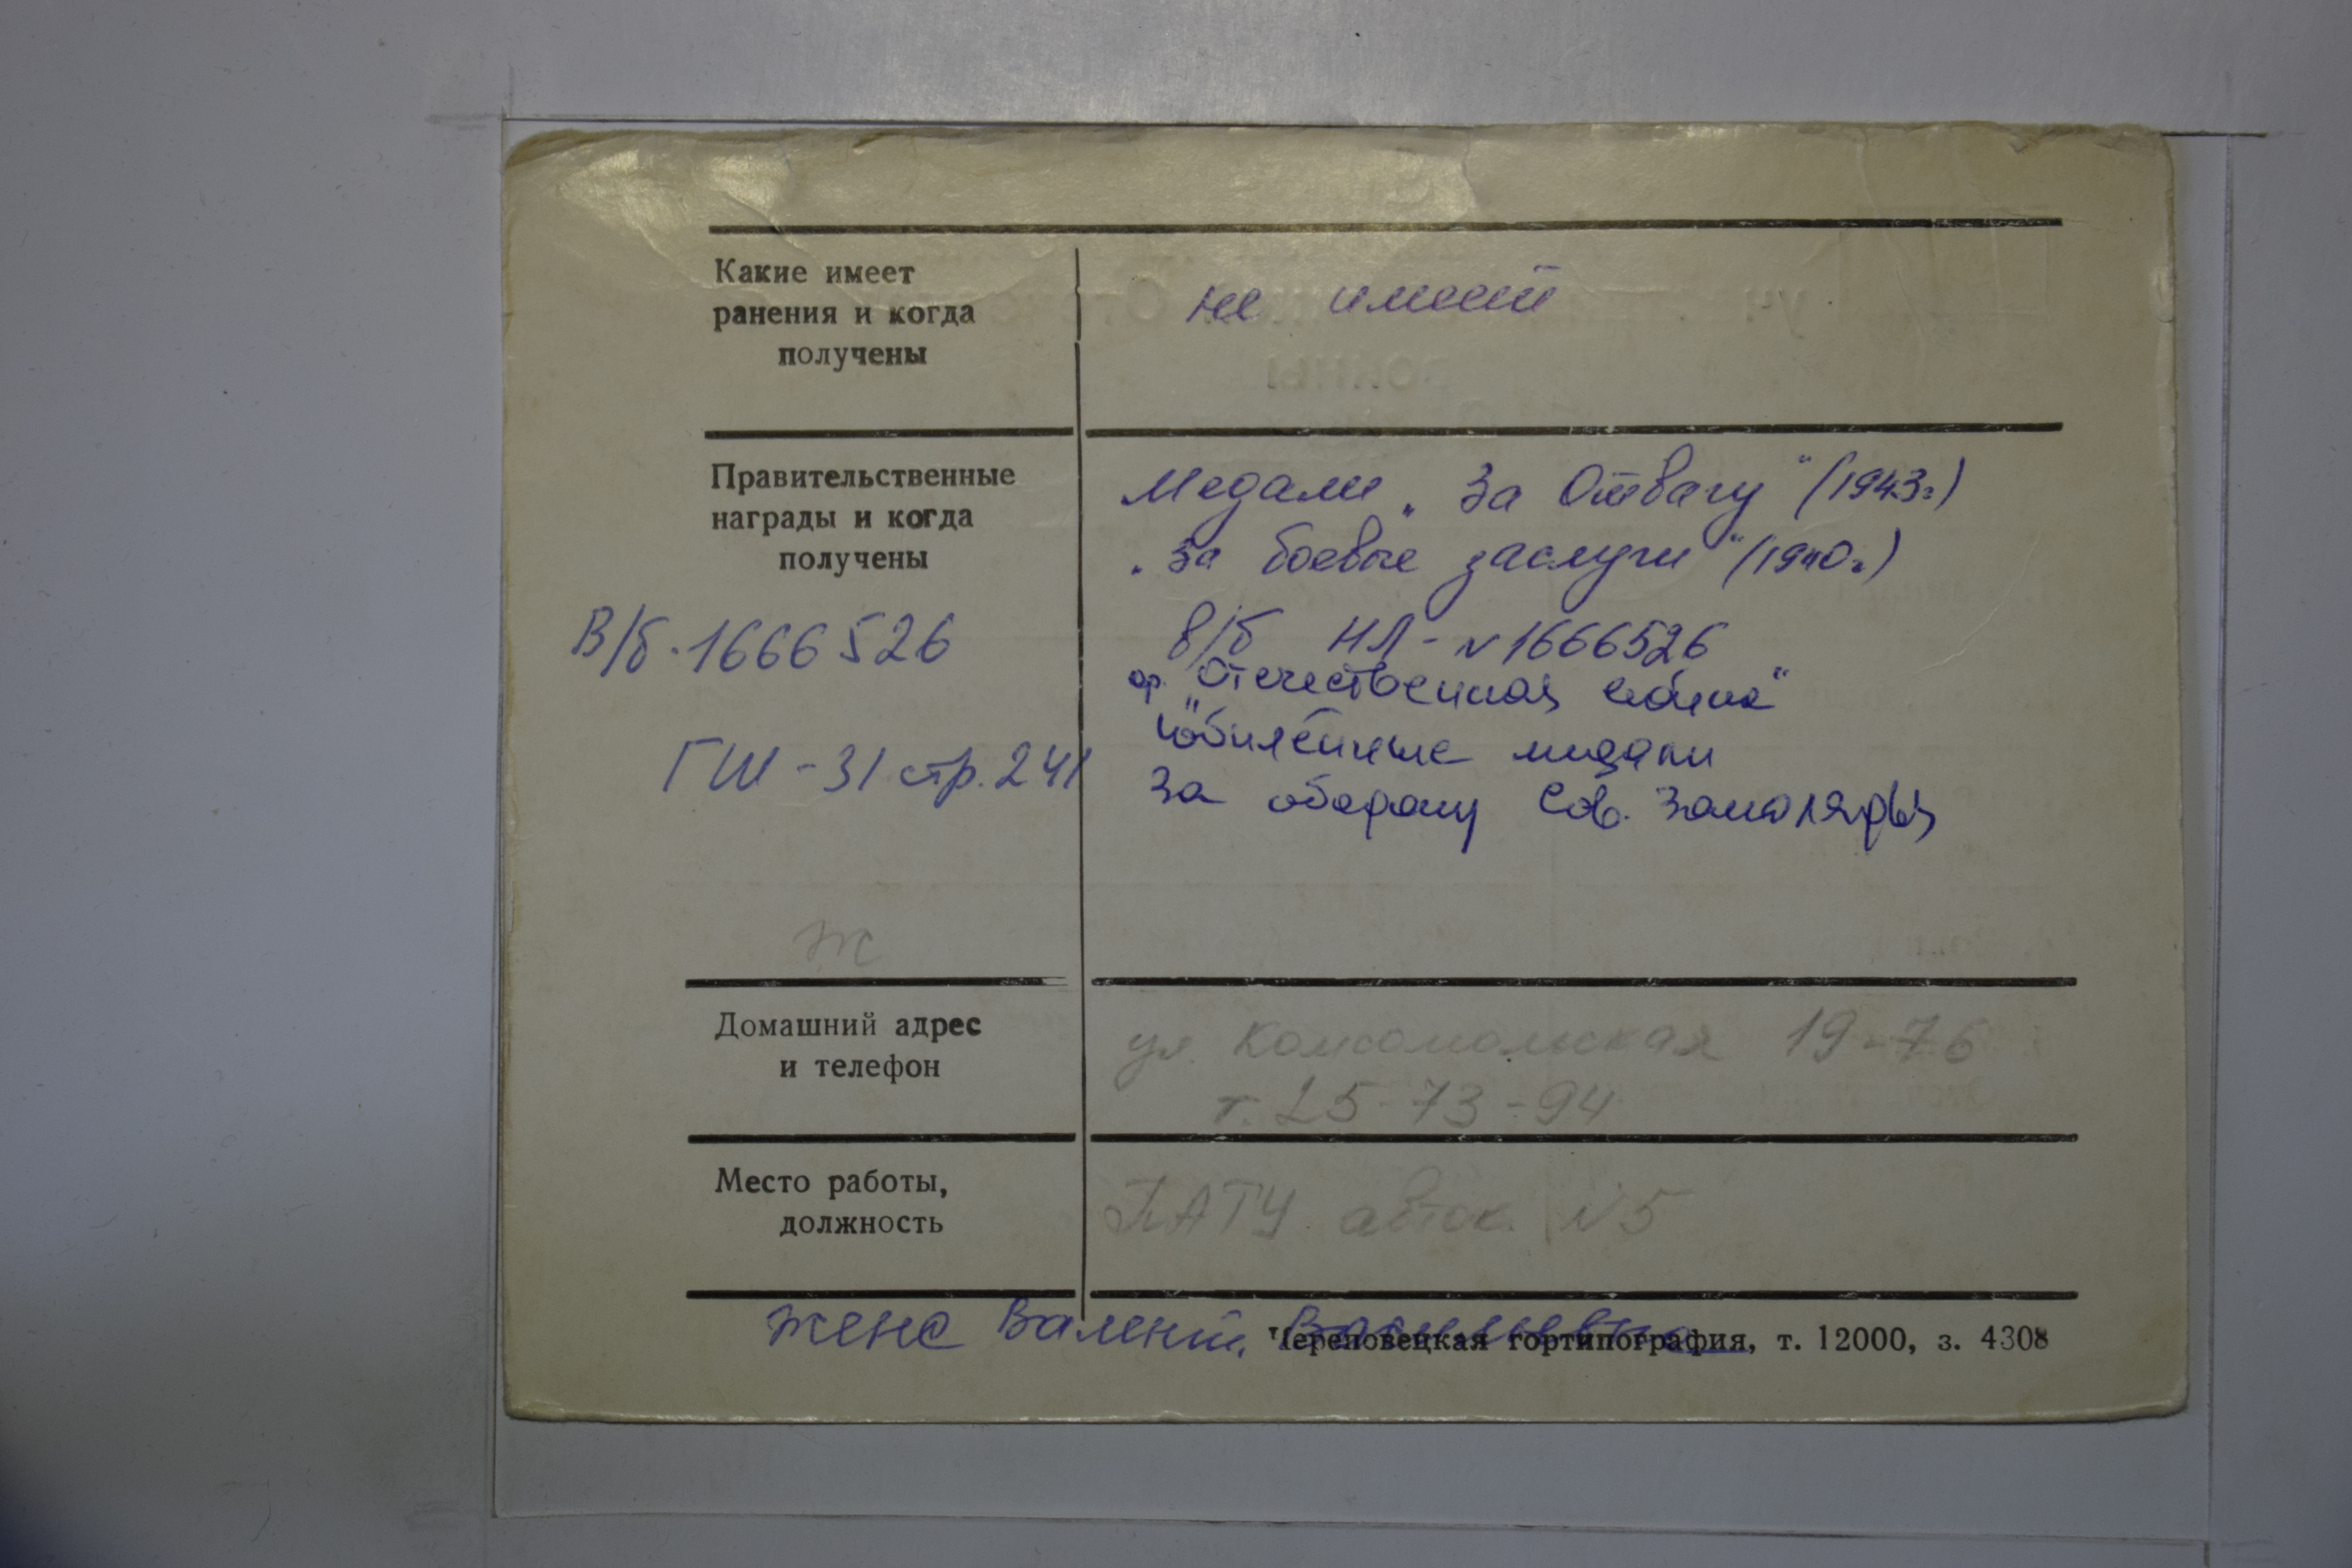 Какие имеет
ранения и когда
получены
не имеет
Правительственные
награды и когда
получены
Медали „За Отвагу" (1943г)
„За боевые заслуги" (1940г.)
В/б - 1666526
в/б НЛ - N 1666526
ор. "Отечественная война"
Юбилейные медали
ГШ - 31 стр. 241
За оборону Сов. Заполярья
Ж
Домашний адрес
и телефон
ул. Комсомольская 19-76
т. 25-73-94
Место работы,
должность
ПАТУ. авток. N5
жена Валент. Васильевна
Череповецкая гортипография, т. 12000, з. 4308